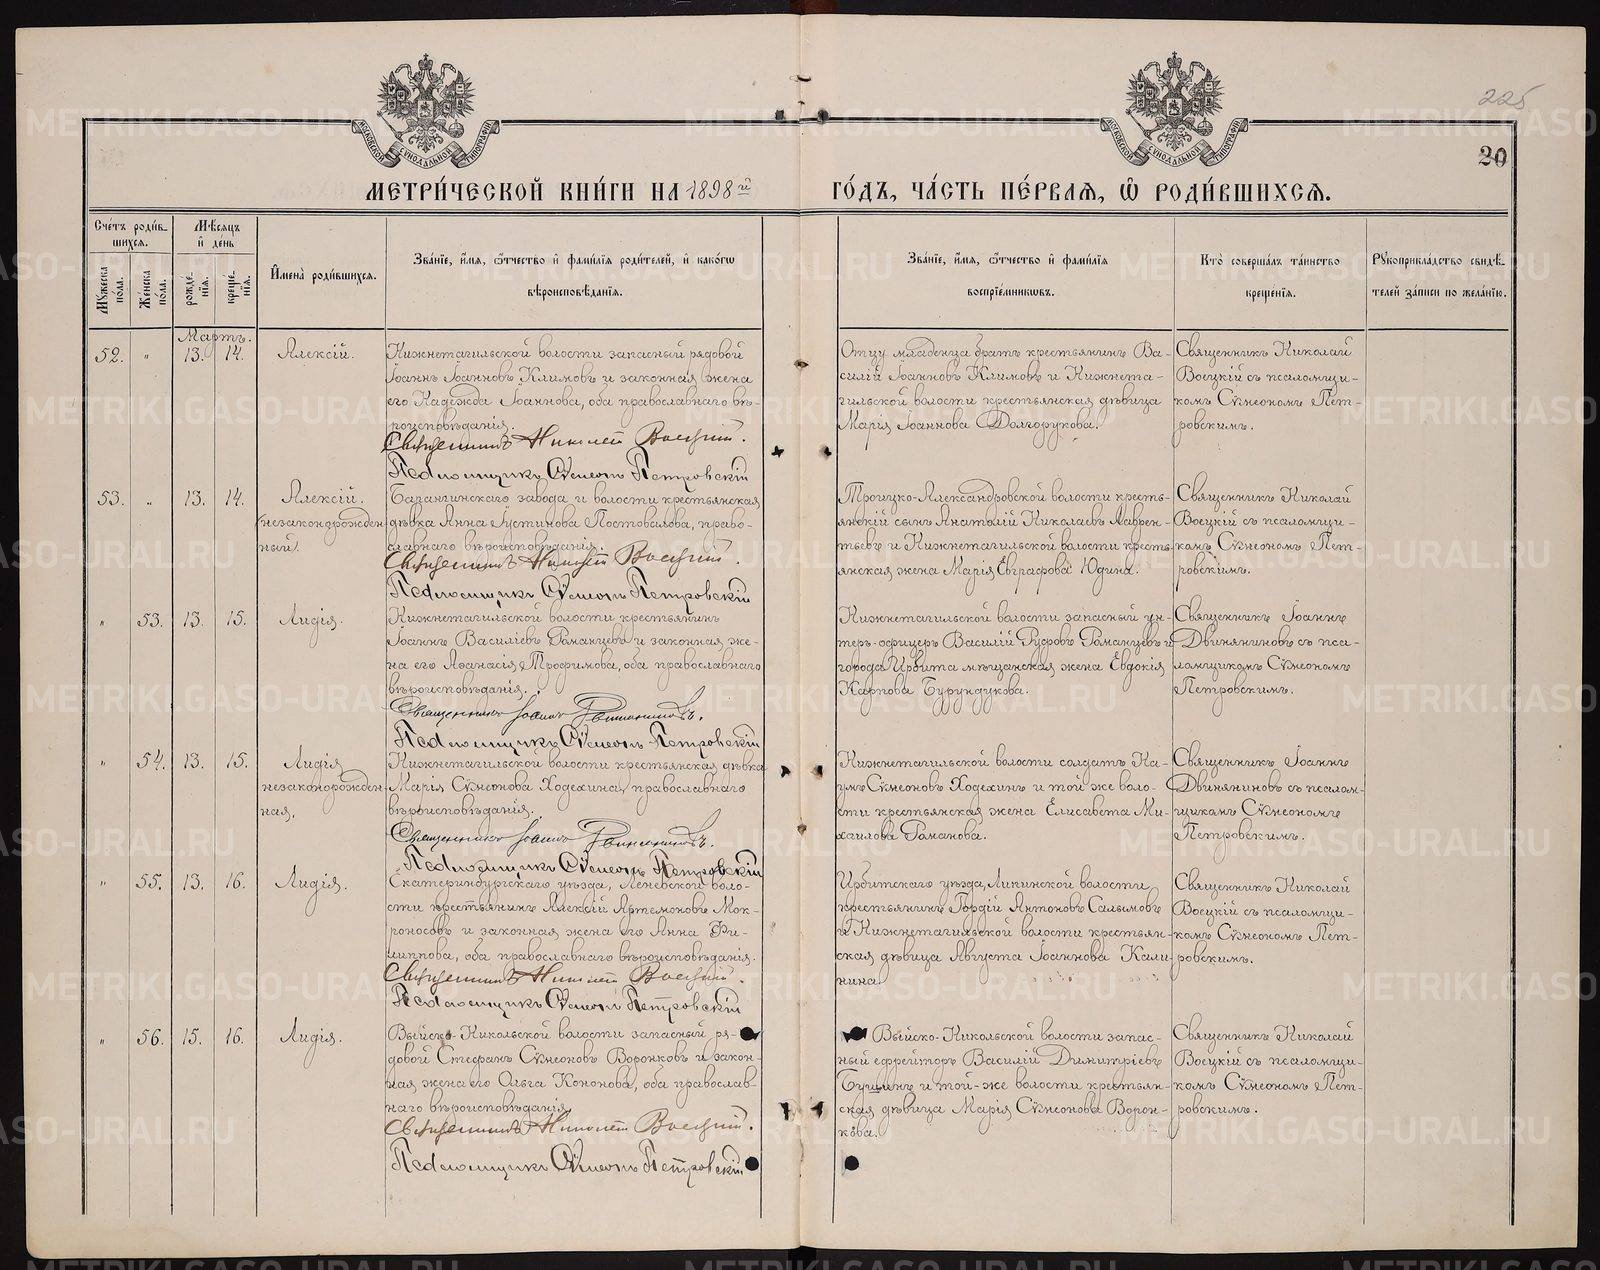 225
20
МОСКОВСКОЙ СѴНОДАЛЬНОЙ ТИПОГРАФІИ
МОСКОВСКОЙ СѴНОДАЛЬНОЙ ТИПОГРАФІИ
МЕТРИ́ЧЕСКОЙ КНИ́ГИ НА 1898й ГО́ДЪ, ЧА́СТЬ ПЕ́РВАЯ, Ѽ РОДИ́ВШИХСЯ.
Сче́тъ роди́в-
шихся.
Мѣ́сяцъ
и҆ де́нь
Му́жеска по́ла.
Же́нска по́ла.
рожде́-
нїя.
креще́-
нїя.
И҆мена̀ роди́вшихся.
Зва́нїе, и҆́мя, ѻ҆́тчество и҆ фамѝлїя роди́телей, и҆ како́гѡ
вѣроисповѣ́данїя.
Зва́нїе, и҆́мя, ѻ҆́тчество и҆ фамѝлїя
воспрїе́мникѡвъ.
Кто̀ соверша́лъ та́инство
креще́нїя.
Рꙋкоприкла́дство свидѣ́-
телей за́писи по жела́нїю.
Мартъ.
52. " 13. 14. Алексій.
Нижнетагильской волости запасный рядовой
Іоаннъ Іоанновъ Климовъ и законная жена
его Надежда Іоаннова, оба православнаго вѣ-
роисповѣданія.
Священникъ Николай Воецкій.
Псаломщикъ Сѷмеонъ Петровскій
Отцу младенца братъ крестьянинъ Ва-
силій Іоанновъ Климовъ и Нижнета-
гильской волости крестьянская дѣвица
Марія Іоаннова Долгорукова.
Священникъ Николай
Воецкій съ псаломщи-
комъ Сѷмеономъ Пет-
ровскимъ.
53. " 13. 14. Алексій.
(незаконорожден-
ный).
Баранчинскаго завода и волости крестьянская
дѣвка Анна Іустинова Постовалова, право-
славнаго вѣроисповѣданія.
Священникъ Николай Воецкій.
Псаломщикъ Сѷмеонъ Петровскій
Троицко-Александровской волости кресть-
янскій сынъ Анатолій Николаевъ Лаврен-
тьевъ и Нижнетагильской волости кресть-
янская жена Марія Евграфова Юдина.
Священникъ Николай
Воецкій съ псаломщи-
комъ Сѷмеономъ Пет-
ровскимъ.
" 53. 13. 15. Лидія.
Нижнетагильской волости крестьянинъ
Іоаннъ Василіевъ Романцевъ и законная же-
на его Аѳанасія Трофимова, оба православнаго
вѣроисповѣданія.
Священникъ Іоаннъ Двиняниновъ.
Псаломщикъ Сѷмеонъ Петровскій
Нижнетагильской волости запасный ун-
теръ-офицеръ Василій Руфовъ Романцевъ и
города Ирбита мѣщанская жена Евдокія
Карпова Бурундукова.
Священникъ Іоаннъ
Двиняниновъ съ пса-
ломщикомъ Сѷмеономъ
Петровскимъ.
" 54. 13. 15. Лидія
незаконорожден-
ная.
Нижнетагильской волости крестьянская дѣвка
Марія Сѷмеонова Ходехина, православнаго
вѣроисповѣданія.
Священникъ Іоаннъ Двиняниновъ.
Псаломщикъ Сѷмеонъ Петровскій
Нижнетагильской волости солдатъ На-
умъ Сѷмеоновъ Ходехинъ и той же воло-
сти крестьянская жена Елисавета Ми-
хаилова Романова.
Священникъ Іоаннъ
Двиняниновъ съ псалом-
щикомъ Сѷмеономъ
Петровскимъ.
" 55. 13. 16. Лидія.
Екатеринбургскаго уѣзда, Леневской воло-
сти крестьянинъ Алексій Артемоновъ Мок-
роносовъ и законная жена его Анна Фи-
липпова, оба православнаго вѣроисповѣданія.
Священникъ Николай Воецкій.
Псаломщикъ Сѷмеонъ Петровскій
Ирбитскаго уѣзда, Липинской волости
крестьянинъ Гордій Антоновъ Салымовъ
и Нижнетагильской волости крестьян-
ская дѣвица Августа Іоаннова Кали
нина.
Священникъ Николай
Воецкій съ псаломщи-
комъ Сѷмеономъ Пет-
ровскимъ.
" 56. 15. 16. Лидія.
Выйско-Никольской волости запасный ря-
довой Стефанъ Сѷмеоновъ Воронковъ и закон-
ная жена его Ольга Кононова, оба православ-
наго вѣроисповѣданія
Священникъ Николай Воецкій.
Псаломщикъ Сѷмеонъ Петровскій
Выйско-Никольской волости запас-
ный ефрейторъ Василій Димитріевъ
Бушинъ и той-же волости крестьян-
ская дѣвица Марія Сѷмеонова Ворон-
кова.
Священникъ Николай
Воецкій съ псаломщи-
комъ Сѷмеономъ Пет-
ровскимъ.
METRIKI.GASO-URAL.RU